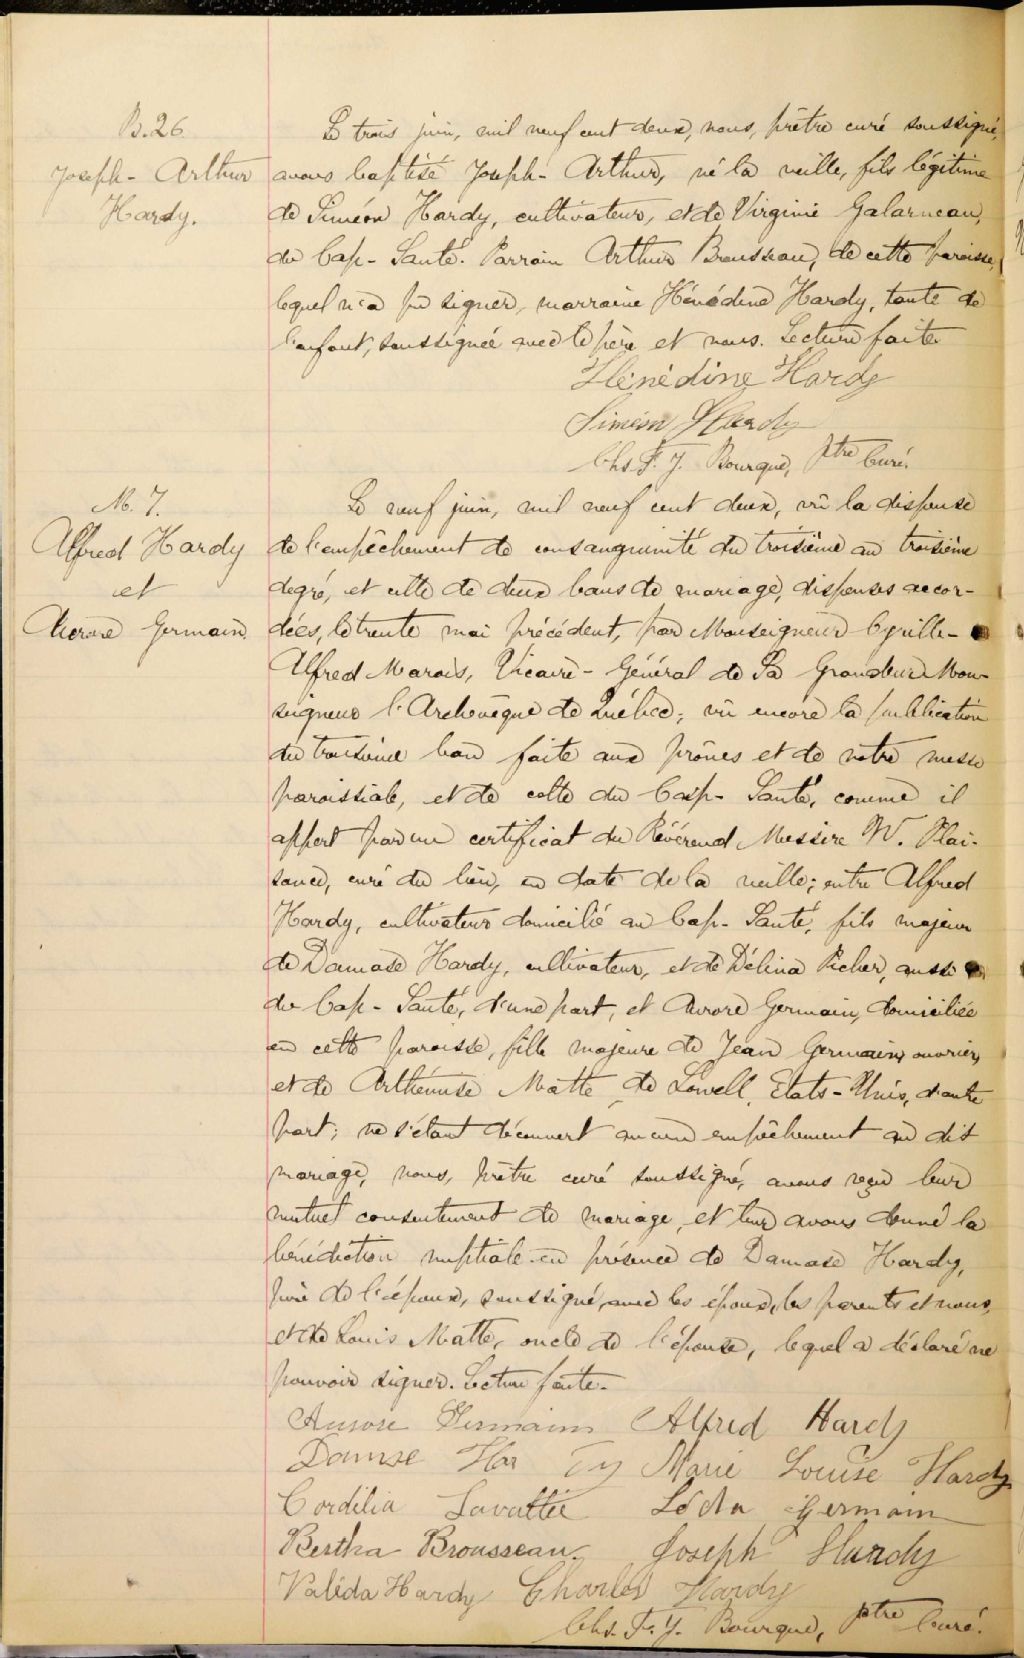 B. 26
Joseph - Arthur
Hardy.
Le trois juin, mil neuf cent deux, nous, prêtre curé soussigné,
avons baptisé Joseph - Arthur, né la veille, fils légitime
de Siméon Hardy, cultivateur, et de Virginie Galarneau,
du Cap - Santé. Parrain Arthur Brousseau, de cette paroisse,
lequel n'a pu signer, marraine Hénédine Hardy, tante de
l'enfant, soussignée avec le père et nous. Lecture faite.
Hénédine Hardy
Siméon Hardy
Chs. F. J. Bourque, ptre Curé.
M. 7.
Alfred Hardy
et
Aurore Germain
Le neuf juin, mil neuf cent deux, vû la dispense
de l'empêchement de consanguinité du troisième au troisième
degré, et celle de deux bans de mariage, dispenses accor-
dées, le trente mai précédent, par Monseigneur Cyrille -
Alfred Marois, Vicaire - Général de Sa Grandeur Mon-
seigneur l'Archevêque de Québec; vû encore la publication
du troisième ban faite aux prônes et de notre messe
paroissiale, et de celle du Cap - Santé, comme il
appert par un certificat du Révérend Messire W. Plai-
sance, curé du lieu, en date de la veille; entre Alfred
Hardy, cultivateur domicilié au Cap - Santé, fils majeur
de Damase Hardy, cultivateur, et de Délina Richer, aussi
du Cap - Santé, d'une part, et Aurore Germain, domiciliée
en cette paroisse, fille majeure de Jean Germain, ouvrier,
et de Arthémise Matte, de Lowell, Etats - Unis, d'autre
part; ne s'étant découvert aucun empêchement au dit
mariage, nous, prêtre curé soussigné, avons reçu leur
mutuel consentement de mariage, et leur avons donné la
bénédiction nuptiale en présence de Damase Hardy,
père de l'époux, soussigné, avec les époux, les parents et nous,
et de Louis Matte, oncle de l'épouse, lequel a déclaré ne
pouvoir signer. Lecture faite.
Aurore Germain Alfred Hardy
Damse Har dy Marie Louise Hardy
Cordilia Lavallée Léda Germain
Bertha Brousseau. Joseph Hardy
Valida Hardy Charles Hardy
Chs. F. J. Bourque, ptre Curé.